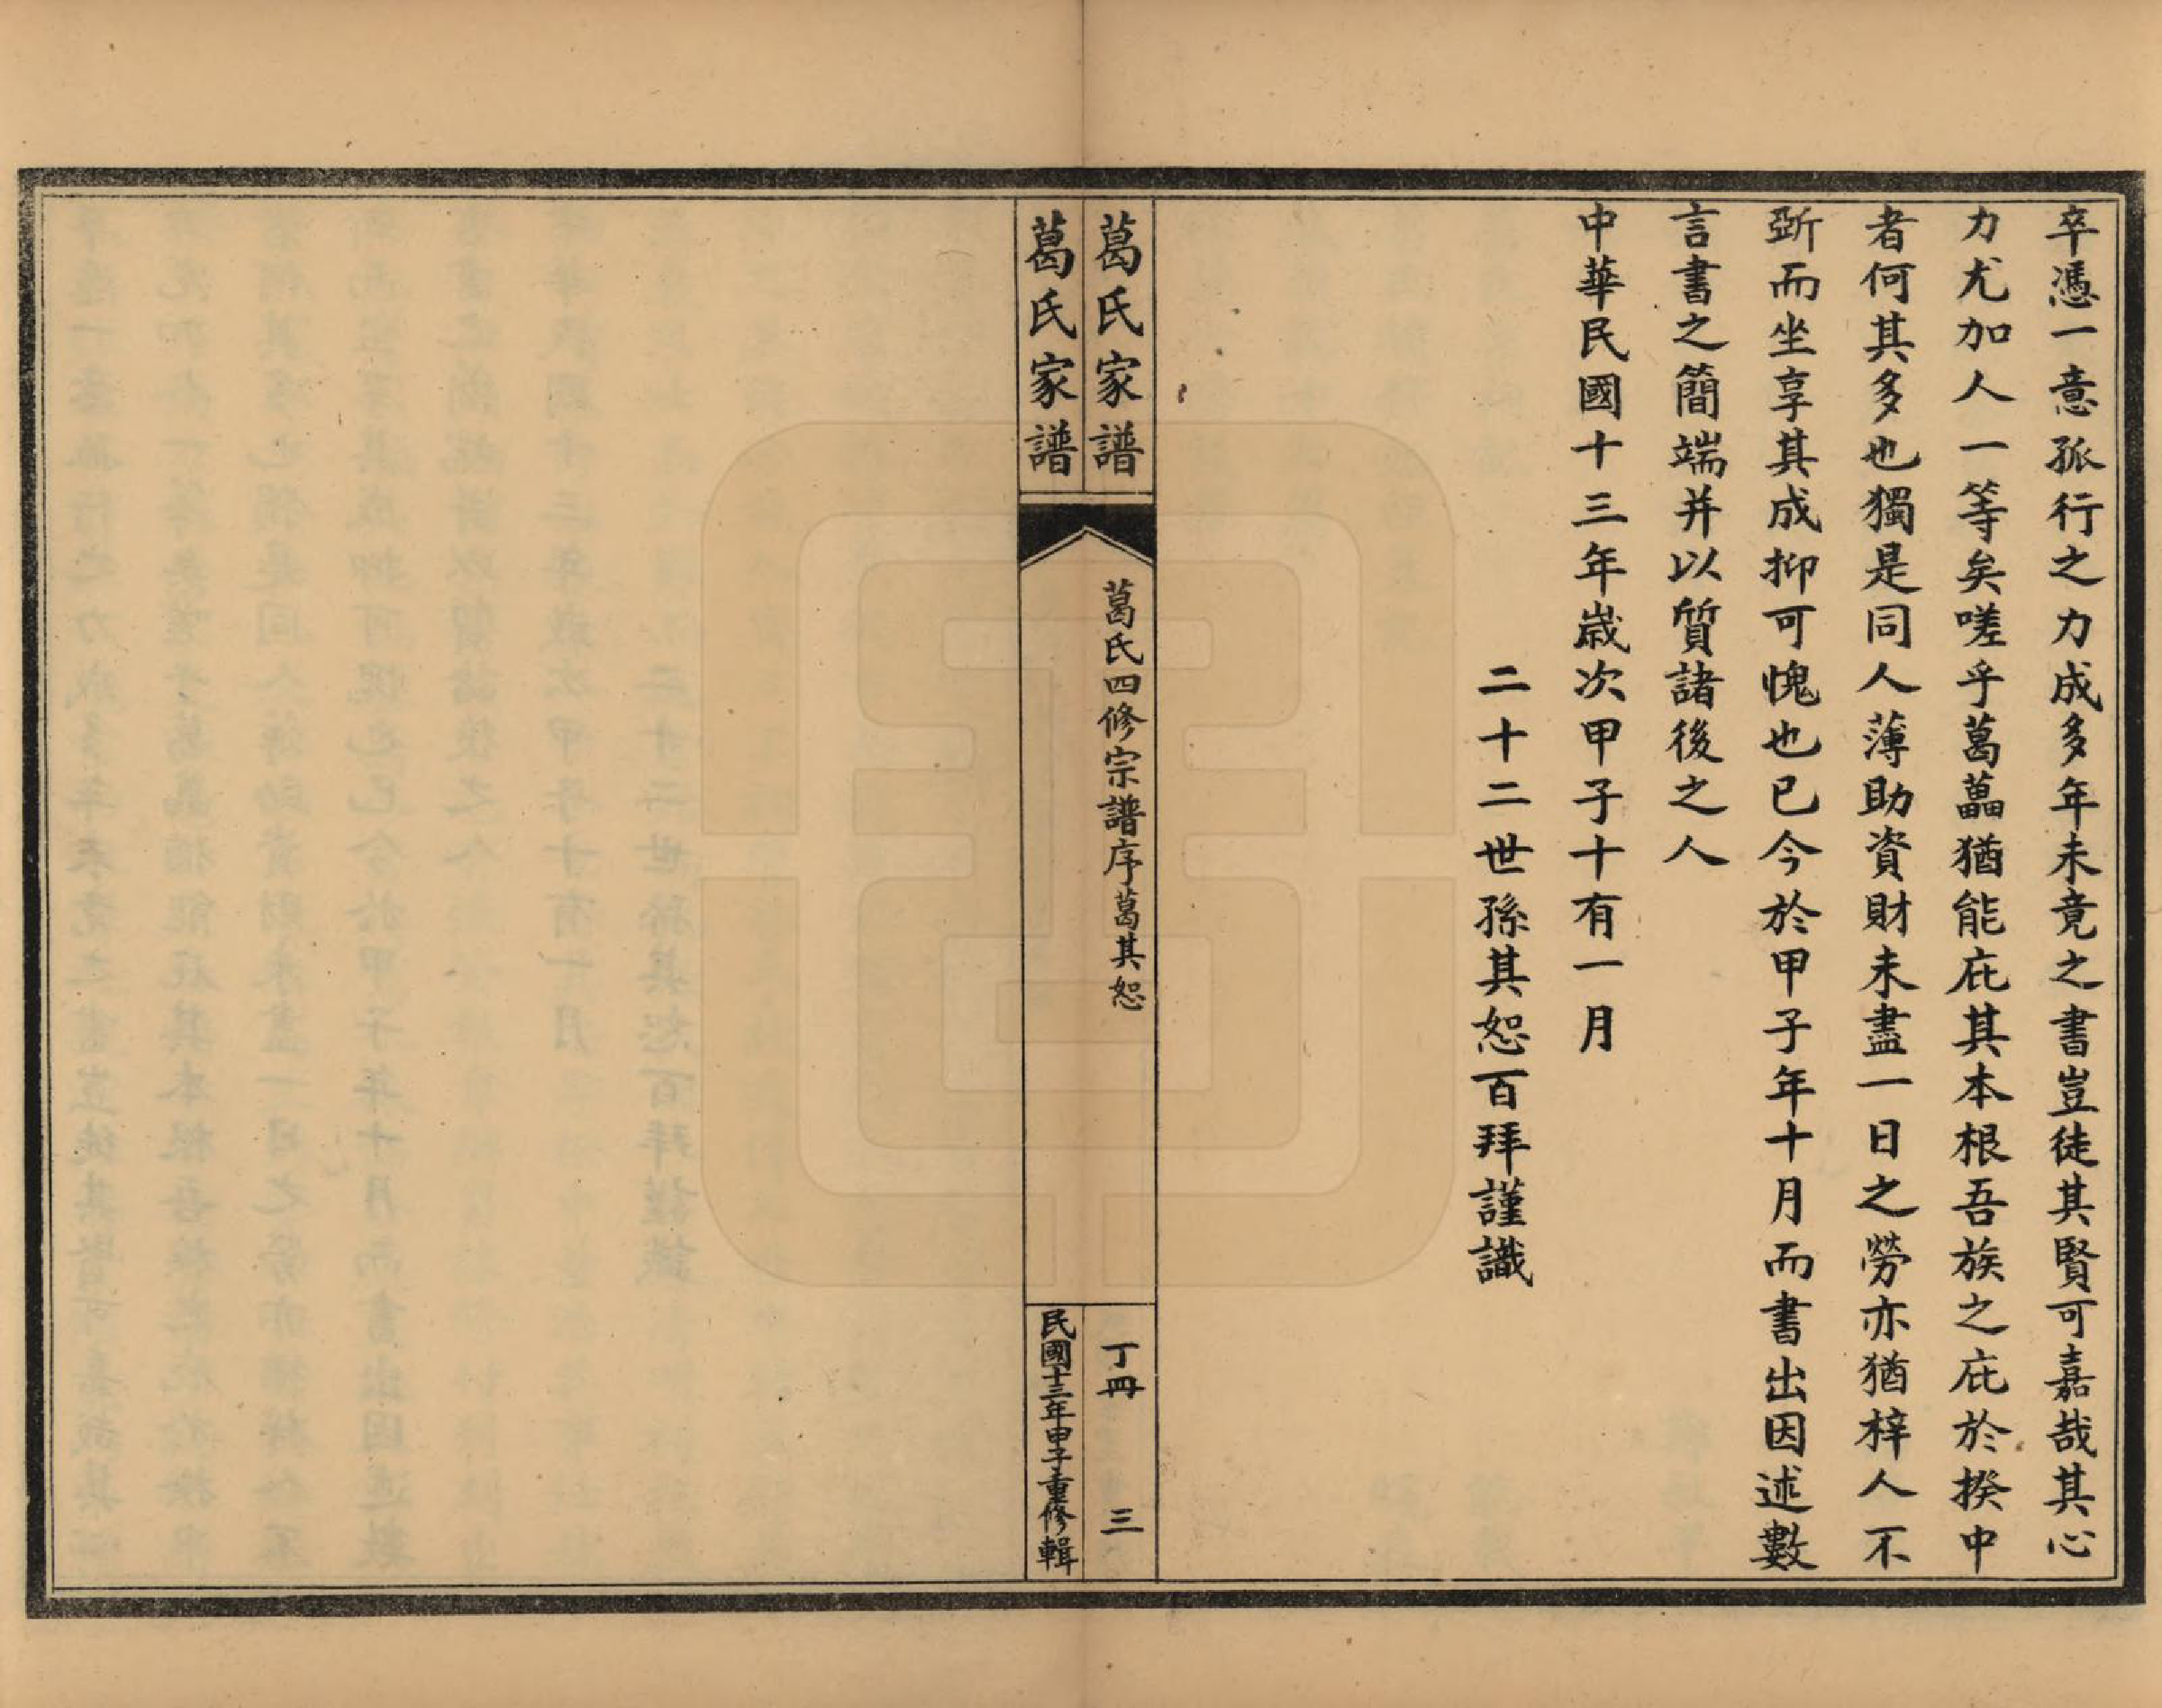 卒憑一意孤行之力成多年未竟之書豈徒其賢可嘉哉其心
力尤加人一等矣嗟乎葛藟猶能庇其本根吾族之庇於揆中
者何其多也獨是同人薄助資財未盡一日之勞亦猶梓人不
斲而坐享其成抑可愧也已今於甲子年十月而書出因述數
言書之簡端并以質諸後之人
中華民國十三年歲次甲子十有一月
二十二世孫其恕百拜謹識
葛氏家譜
葛氏四修宗譜序葛其恕
丁冊 三
葛氏家譜
民國十三年甲子重修輯